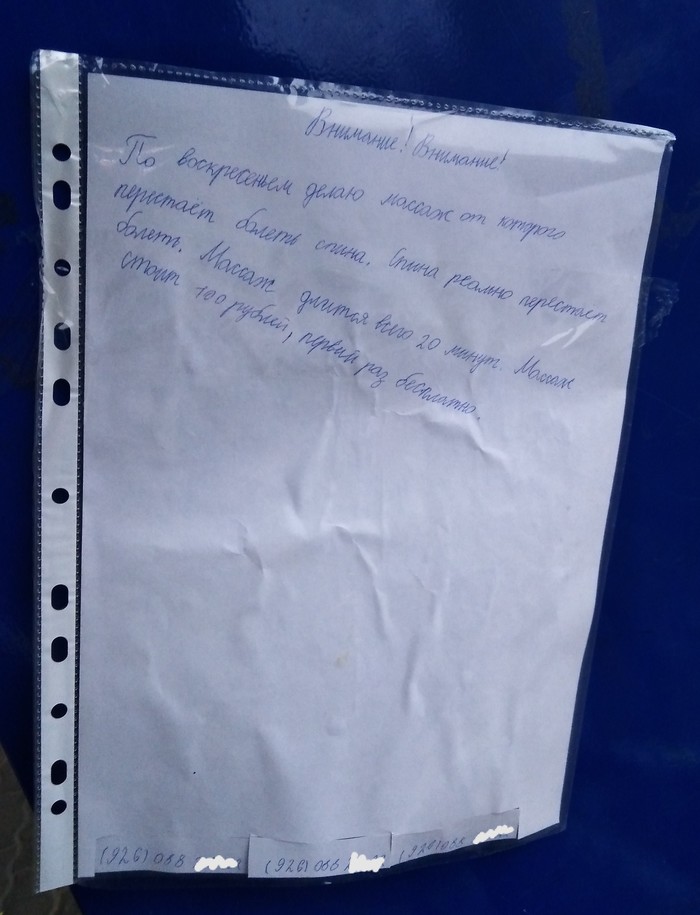 Внимание! Внимание!
По воскресеньем делаю массаж от которого
перестаёт болеть спина. Спина реально перестаёт
болеть. Массаж длится всего 20 минут. Массаж
стоит 100 рублей, первый раз бесплатно.
(926) 088 (926) 088 (926) 088